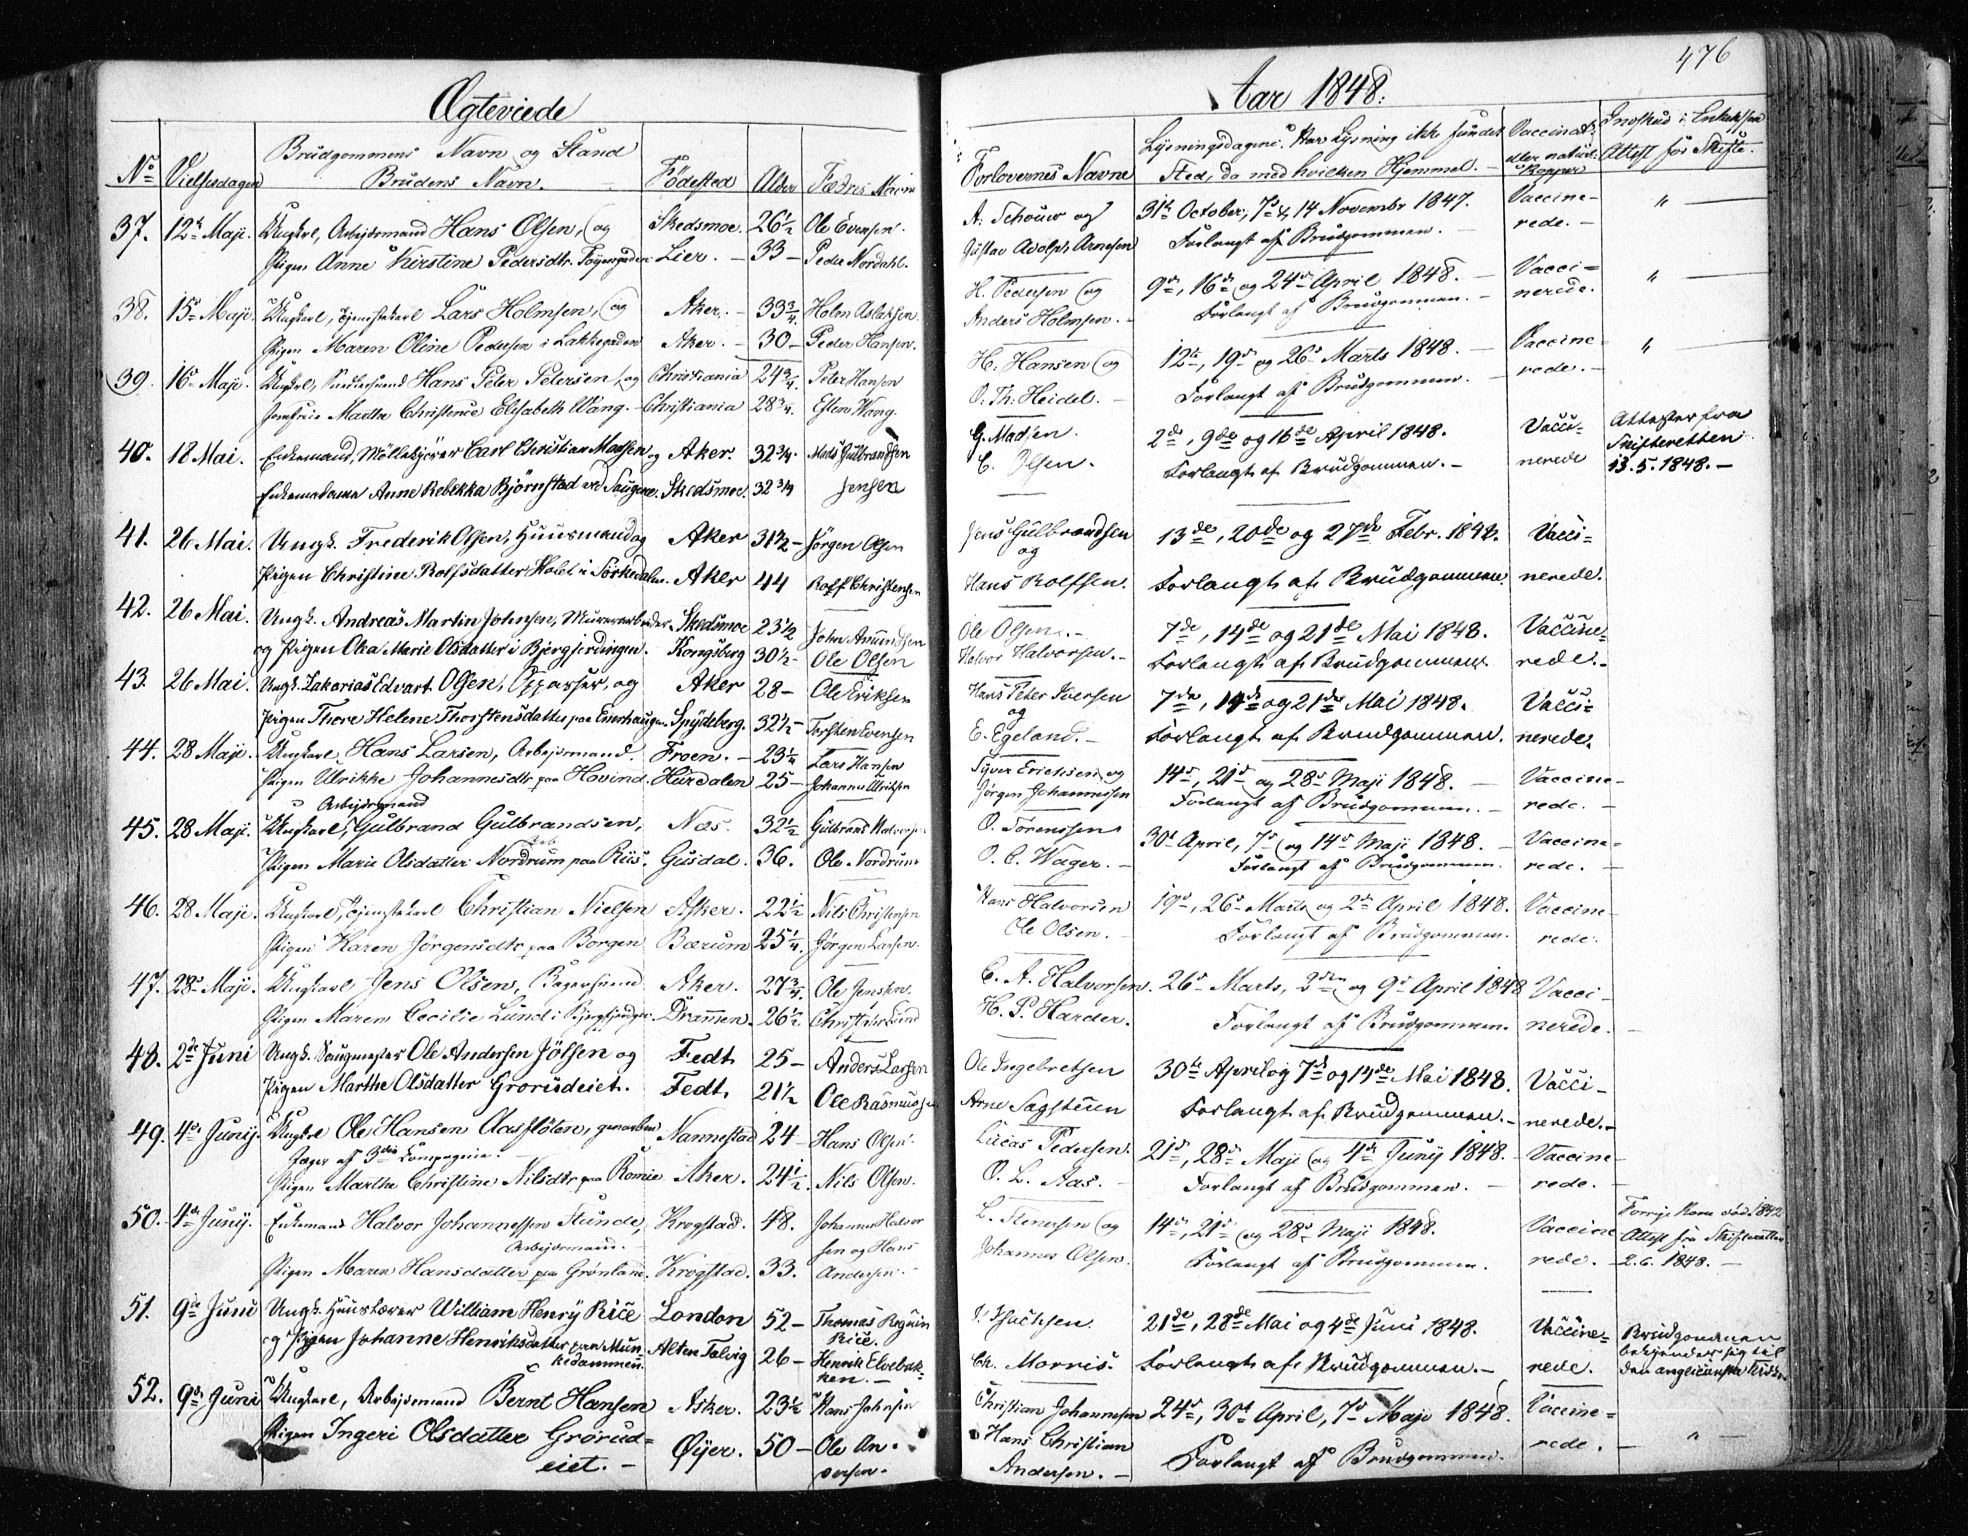 476
Ægteviede
Aar 1848.
No Vielsesdagen Brudgommens Navn og Stand Fødested Alder Fædres Navne
Brudens Navn.
Forlovernes Navne Lysningsdagene. Har Lysning ikke fundet Vaccinat:
Sted, da med hvilken Hjemmel. eller naturl: Kopper Attest for Skifte.
37. 12te Maji. Ungkarl, Arbejdsmand Hans Olsen, og Skedsmoe. 26½ Ole Evensen.
Pigen Anne Kirstine Pedersdtr. Lier. 33 Peder Nordahl.
A: Schouw og 31te October, 7de & 14 Novembr 1847. Vaccine-
Gustav Adolph Arnesen Forlangt af Brudgommen. rede. "
38. 15de Maji. Ungkarl, Tjenestekarl Lars Holmsen, og Aker. 33¾ Holm Aslaksen.
Pigen Maren Oline Pedersen i Lakkegaden Aker. 30 Peder Hansen.
H. Pedersen og 9de, 16de og 24de April 1848. Vacci=
Anders Holmsen. Forlangt af Brudgommen. nerede. "
39. 16de Maji. Ungkarl, Hans Peter Petersen, og Christiania 24¾ Peter Hansen
Jomfrue Martha Christence Elisabeth Wang. Christiania 28¾ Esten Wang.
H. Hansen og 12te, 19de og 26de Marts 1848. Vaccine-
O. Th: Heidel. Forlangt af Brudgommen. rede. "
40. 18 Mai. Enkemand, Møllekjører Carl Christian Madsen og Aker. 32¾ Mads Gulbrandsen
Enkemadame Anne Rebekka Bjørnstad ved Saugene. Skedsmoe. 32¾ Jensen
G. Madsen. 2de, 9de og 16de April 1848. Vacci- Attester fra
C. Olsen. Forlangt af Brudgommen. nerede Skifteretten
13.5.1848.
41. 26 Mai. Ungk. Frederik Olsen, Huusmand og Aker 31½ Jørgen Olsen
Pigen Christine Rolfsdatter Holet i Sørkedalen. Aker 44 Rolf Christensen
Jens Gulbrandsen 13de, 20de og 27de Febr. 1848. Vacci-
og
Hans Rolfsen. Forlangt af Brudgommen. nerede.
42. 26 Mai. Ungk. Andreas Martin Johnsen, Murerarbeider Skedsmoe 23½ John Amundsen
og Pigen Olea Marie Olsdatter i Bjergfjerdingen. Kongsberg 30½ Ole Olsen
Ole Olsen. 7de, 14de og 21de Mai 1848. Vaccine-
Halvor Halvorsen. Forlangt af Brudgommen. rede.
43. 26 Mai. Ungk. Zakarias Edvart Olsen, Oppasser, og Aker 28 Ole Eriksen
Pigen Thore Helene Thorstensdatter paa Enerhaugen. Spydeberg. 32½ Torsten Evensen
Hans Peter Iversen 7de, 14de og 21de Mai 1848. Vacci-
og
E. Egeland. Forlangt af Brudgommen. nerede.
44. 28 Maji. Ungkarl, Hans Larsen, Arbejdsmand. Froen. 23¼ Lars Hansen
Pigen Ulrikke Johannesdtr paa Hovind. Hurdalen 25 Johannes Ulriksen
Syver Erichsen og 14de, 21de og 28de Maji 1848. Vaccine-
Jørgen Johannessen Forlangt af Brudgommen. rede.
Arbejdsmand
45. 28 Maji. Ungkarl, Gulbrand Gulbrandsen, Næs. 32½ Gulbrand Halvorsen
Pigen Marie Olsdatter Nordrum paa Riis. Gusdal. 36. Ole Nordrum
O. Sørenssen 30te April, 7de og 14de Maji 1848. Vaccine-
O. C. Wager. Forlangt af Brudgommen. rede.
46. 28 Maji. Ungkarl, Tjenestekarl Christian Nielsen Asker. 22½ Nils Christensen
Pigen Karen Jørgensdtr paa Borgen Bærum 25¼ Jørgen Larsen.
Hans Halvorsen 19de, 26de Marts og 2den April 1848. Vaccine-
Ole Olsen. Forlangt af Brudgommen. rede.
47. 28de Maji. Ungkarl Jens Olsen, Bagersvend Aker. 27¾ Ole Jensen.
Pigen Maren Cecilie Lund i Drammen. 26½ Christian Lund
C. A. Halvorsen. 26de Marts, 2den og 9de April 1848 Vacci-
H. P. Harder. Forlangt af Brudgommen. nerede.
48. 2de Juni Ungk. Saugmester Ole Andersen Jølsen og Fedt. 25 Anders Larsen
Pigen Marthe Olsdatter Grorudeiet. Fedt. 21½ Ole Rasmussen
Ole Ingebretsen 30te April og 7de og 14de Mai 1848. Vacci-
Arne Sagstuen Forlangt af Brudgommen. nerede.
49. 4de Junij. Ungkarl Ole Hansen Aasfløten, Nannestad 24 Hans Olsen.
Jæger af 3die Compagnie.
Pigen Marthe Christine Nilsdtr paa Aker. 24½ Nils Olsen.
Lucas Pedersen. 21de, 28de Maji og 4de Junij 1848. Vaccine-
O. L. Aas. Forlangt af Brudgommen. rede.
50. 4de Junij. Enkemand Halvor Johannessen Stunde, Krogstad. 48. Johannes Halvor
Arbejdsmand. sen og Hans
Pigen Maren Hansdatter paa Grønland. Krogstad. 33. Andersen.
L. Stenersen og 14de, 21de og 28de Maji 1848. Vaccine Forrige Kone død 1842
Johannes Olsen. Forlangt af Brudgommen. rede. Attest fra Skifteretten
2.6.1848.
51. 9de Juni Ungk. Huuslærer William Henry Rice London 52 Thomas
og Pigen Johanne Henriksdatter paa Mun- Rice.
kedammen. Alten Talvig 26 Henrik Elvebak-
ken.
I. Isachsen. 21de, 28de Mai og 4de Juni 1848. Vaccine- Brudgommen
bekjender sig til
Ch. Morris. Forlangt af Brudgommen. rede. den anglicanske Kirke
52. 9de Juni Ungkarl, Arbejdsmand Bernt Hansen Asker. 23½ Hans Johnsen
Pigen Ingeri Olsdatter Grorud= Øyer. 50 Ole An-
eiet. dersen.
Christian Johannesen 24de, 30te April, 7de Maji 1848. Vaccine=
Hans Christian rede. "
Andersen. Forlangt af Brudgommen.